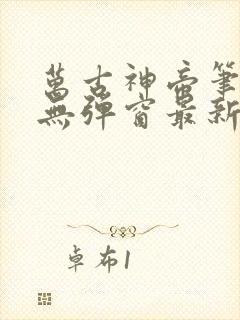 萬古神帝筆
無彈窗最新
卓布1